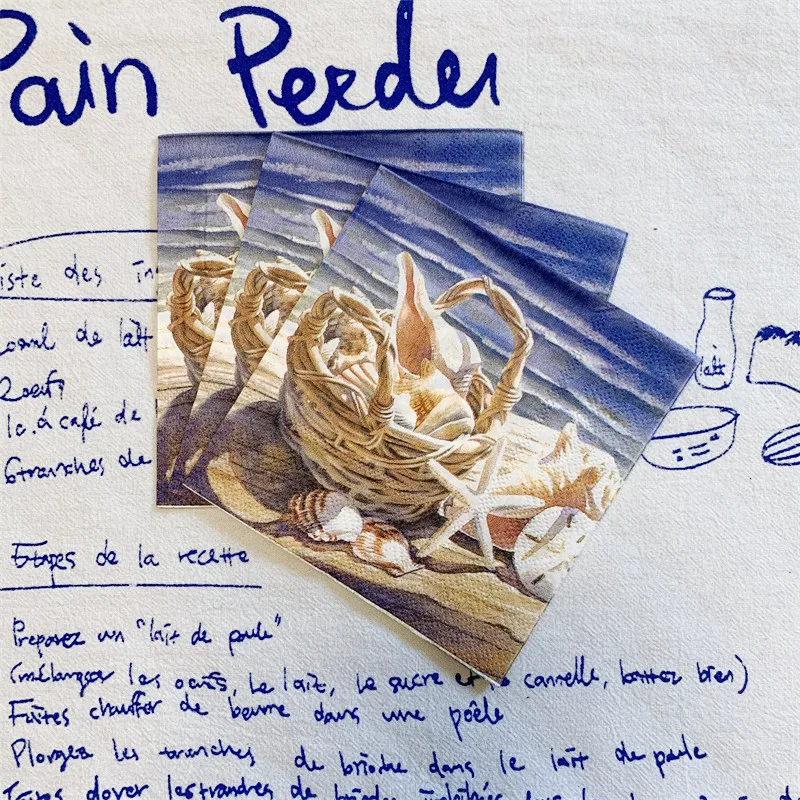 Pain Perdu
iste des in
de lait
2 oeufs
1 c. à café de
6 tranches de
lait
Etapes de la recette
Preparez un "lait de poule"
(mélanger les oeufs, le lait, le sucre et la cannelle, battez bien)
Faites chauffer de beurre dans une poêle
Plongez les tranches de brioche dans le lait de poule
dorer les tranches de